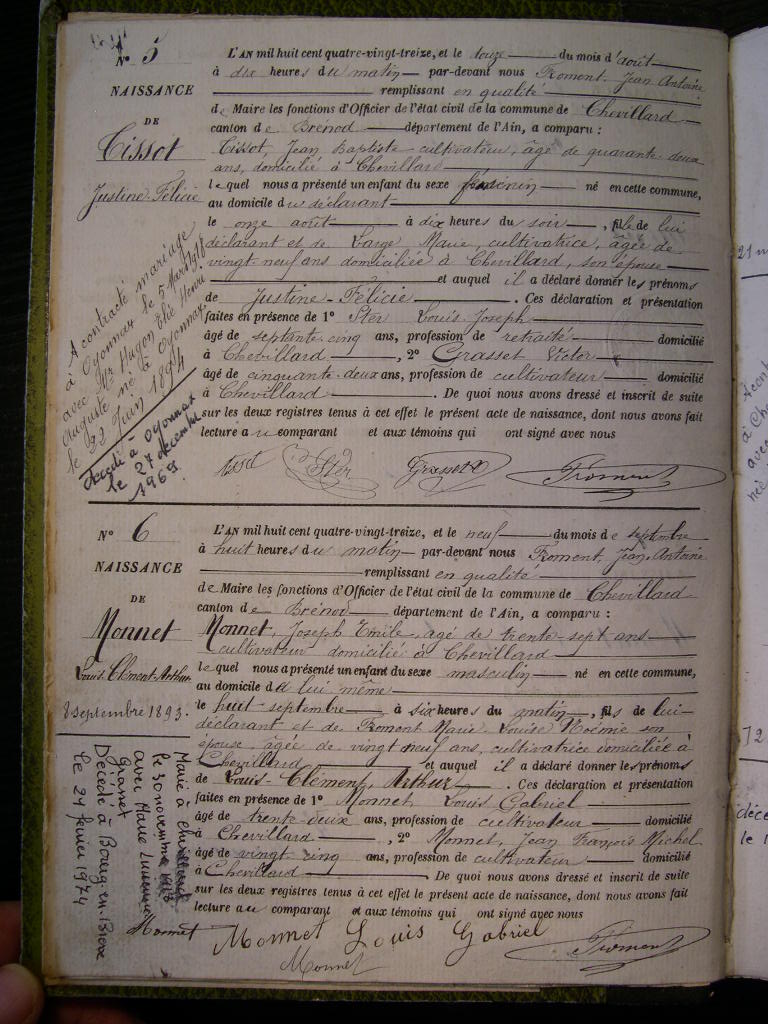 N° 5
NAISSANCE
DE
Tissot
Justine-Félicie
A contracté mariage
à Oyonnax le 5 Mars 1918
avec Mr Hugon Elie Henri
Auguste né à Oyonnax
le 22 Juin 1894
décédé à Oyonnax
le 27 décembre
1969.
L'AN mil huit cent quatre-vingt-treize, et le douze du mois d'août
à dix heures du matin par-devant nous Froment, Jean Antoine
remplissant en qualité
de Maire les fonctions d'Officier de l'état civil de la commune de Chevillard
canton de Brénod département de l'Ain, a comparu :
Tissot, Jean Baptiste cultivateur, âgé de quarante deux
ans, domicilié à Chevillard
lequel nous a présenté un enfant du sexe féminin né en cette commune,
au domicile du déclarant
le onze août à dix heures du soir, fille de lui
déclarant et de Large Marie, cultivatrice, âgée de
vingt-neuf ans domiciliée à Chevillard, son épouse
et auquel il a déclaré donner les prénoms
de Justine-Félicie. Ces déclaration et présentation
faites en présence de 1° Ster Louis Joseph
âgé de septante-cinq ans, profession de retraité domicilié
à Chevillard, 2° Grasset Victor
âgé de cinquante-deux ans, profession de cultivateur domicilié
à Chevillard. De quoi nous avons dressé et inscrit de suite
sur les deux registres tenus à cet effet le présent acte de naissance, dont nous avons fait
lecture au comparant et aux témoins qui ont signé avec nous
Tissot Ster Grasset Froment
N° 6
NAISSANCE
DE
Monnet
Louis-Clément-Arthur
8 Septembre 1893.
Marié à Chevillard
le 30 novembre 1918
avec Marie
Grasset
Décédé à Bourg-en-Bresse
le 24 février 1974
L'AN mil huit cent quatre-vingt-treize, et le neuf du mois de septembre
à huit heures du matin par-devant nous Froment, Jean-Antoine
remplissant en qualité
de Maire les fonctions d'Officier de l'état civil de la commune de Chevillard
canton de Brénod département de l'Ain, a comparu :
Monnet, Joseph Emile, âgé de trente sept ans
cultivateur domicilié à Chevillard
lequel nous a présenté un enfant du sexe masculin né en cette commune,
au domicile de lui même
le huit septembre à six heures du matin, fils de lui-
déclarant et de Fromont Marie Louise Noémie son
épouse âgée de vingt neuf ans, cultivatrice domiciliée à
Chevillard et auquel il a déclaré donner les prénoms
de Louis-Clément, Arthur. Ces déclaration et présentation
faites en présence de 1° Monnet, Louis Gabriel
âgé de trente-deux ans, profession de cultivateur domicilié
à Chevillard, 2° Monnet, Jean François Michel
âgé de vingt cinq ans, profession de cultivateur domicilié
à Chevillard. De quoi nous avons dressé et inscrit de suite
sur les deux registres tenus à cet effet le présent acte de naissance, dont nous avons fait
lecture au comparant et aux témoins qui ont signé avec nous
Monnet Monnet Louis Gabriel Froment
Monnet